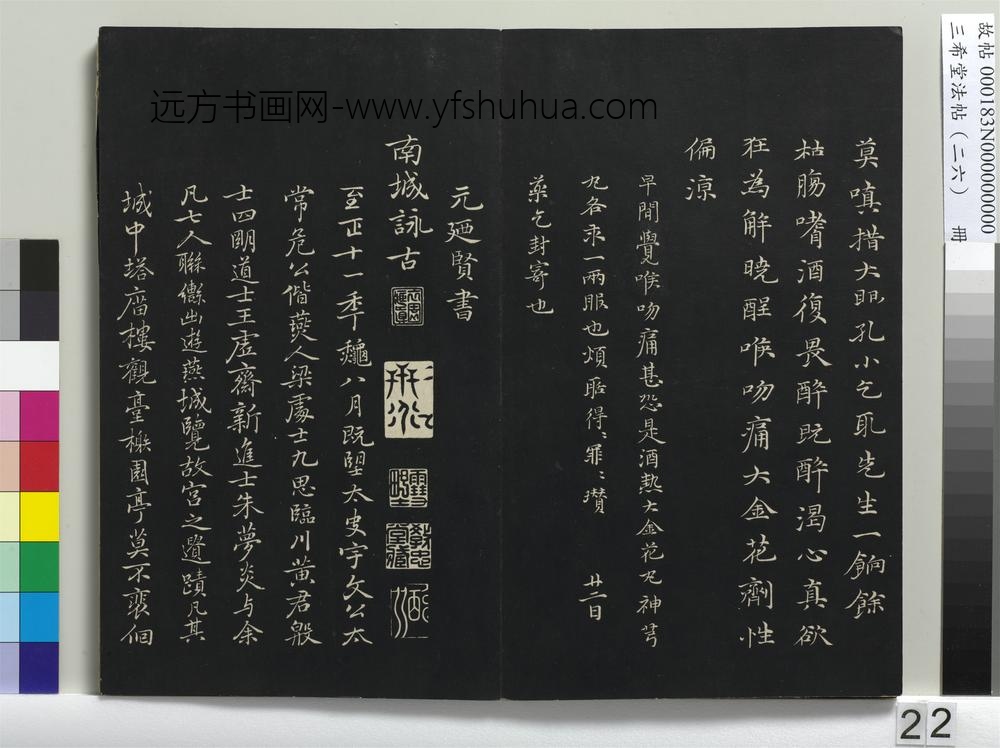 莫嗔措大眼孔小乞取先生一餉餘
枯腸嗜酒復畏醉既醉渴心真欲
狂為解曉酲喉吻痛大金花劑性
偏涼
早聞覺喉吻痛甚恐是酒熱大金花丸神芎
丸各求一兩服也煩聒得〻罪〻瓚
廿二日
藥乞封寄也
元廼賢書
南城詠古
至正十一年秋八月既望太史宇文公太
常危公偕燕人梁處士九思臨川黃君殷
士四明道士王虛齋新進士朱夢炎与余
凡七人聯轡出遊燕城覽故宮之遺蹟凡其
城中塔廟樓觀臺榭園亭莫不裵徊
远方书画网-www.yfshuhua.com
故帖 000183N000000000
三希堂法帖（二六） 冊
22